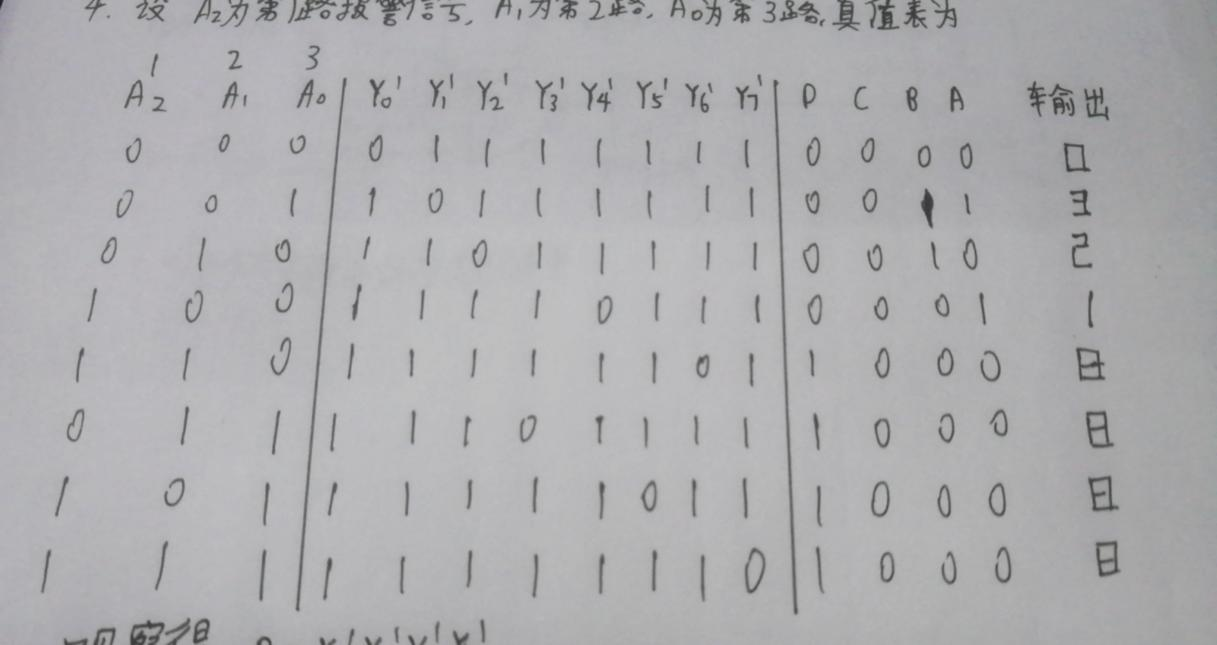 4. 设 A₂为第1路报警信号, A₁为第2路, A₀为第3路, 真值表为
1 2 3
A₂ A₁ A₀ Y₀' Y₁' Y₂' Y₃' Y₄' Y₅' Y₆' Y₇' D C B A 输出
0 0 0 0 1 1 1 1 1 1 1 0 0 0 0 0
0 0 1 1 0 1 1 1 1 1 1 0 0 1 1 3
0 1 0 1 1 0 1 1 1 1 1 0 0 1 0 2
1 0 0 1 1 1 1 0 1 1 1 0 0 0 1 1
1 1 0 1 1 1 1 1 1 0 1 1 0 0 0 8
0 1 1 1 1 1 0 1 1 1 1 1 0 0 0 8
1 0 1 1 1 1 1 1 0 1 1 1 0 0 0 8
1 1 1 1 1 1 1 1 1 1 0 1 0 0 0 8